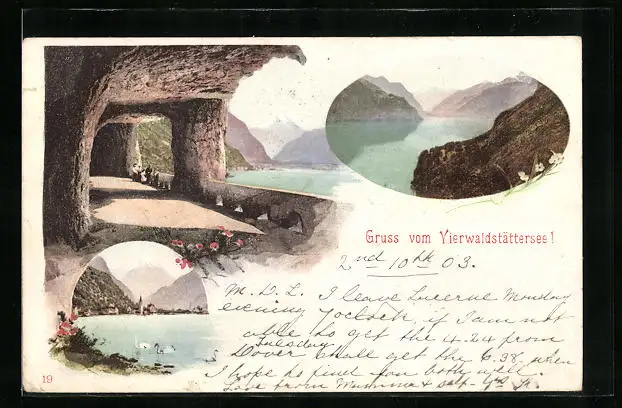 Gruss vom Vierwaldstättersee!
2nd 10th 03.
M. D. L. I leave Lucerne Monday
evening 7 o'clock if I am not
able to get the 4.24 from
Dover Tuesday shall get the 6.38, when
I hope to find you both well.
Love from Mamma & self
19